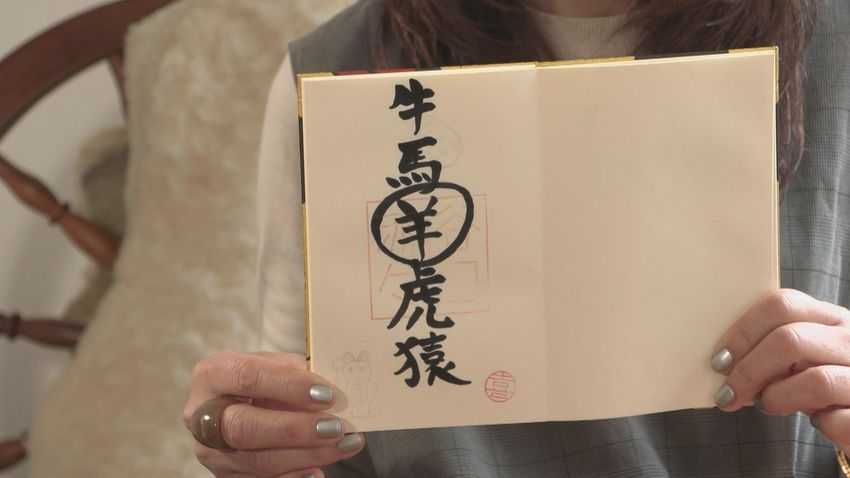 牛馬羊虎猿